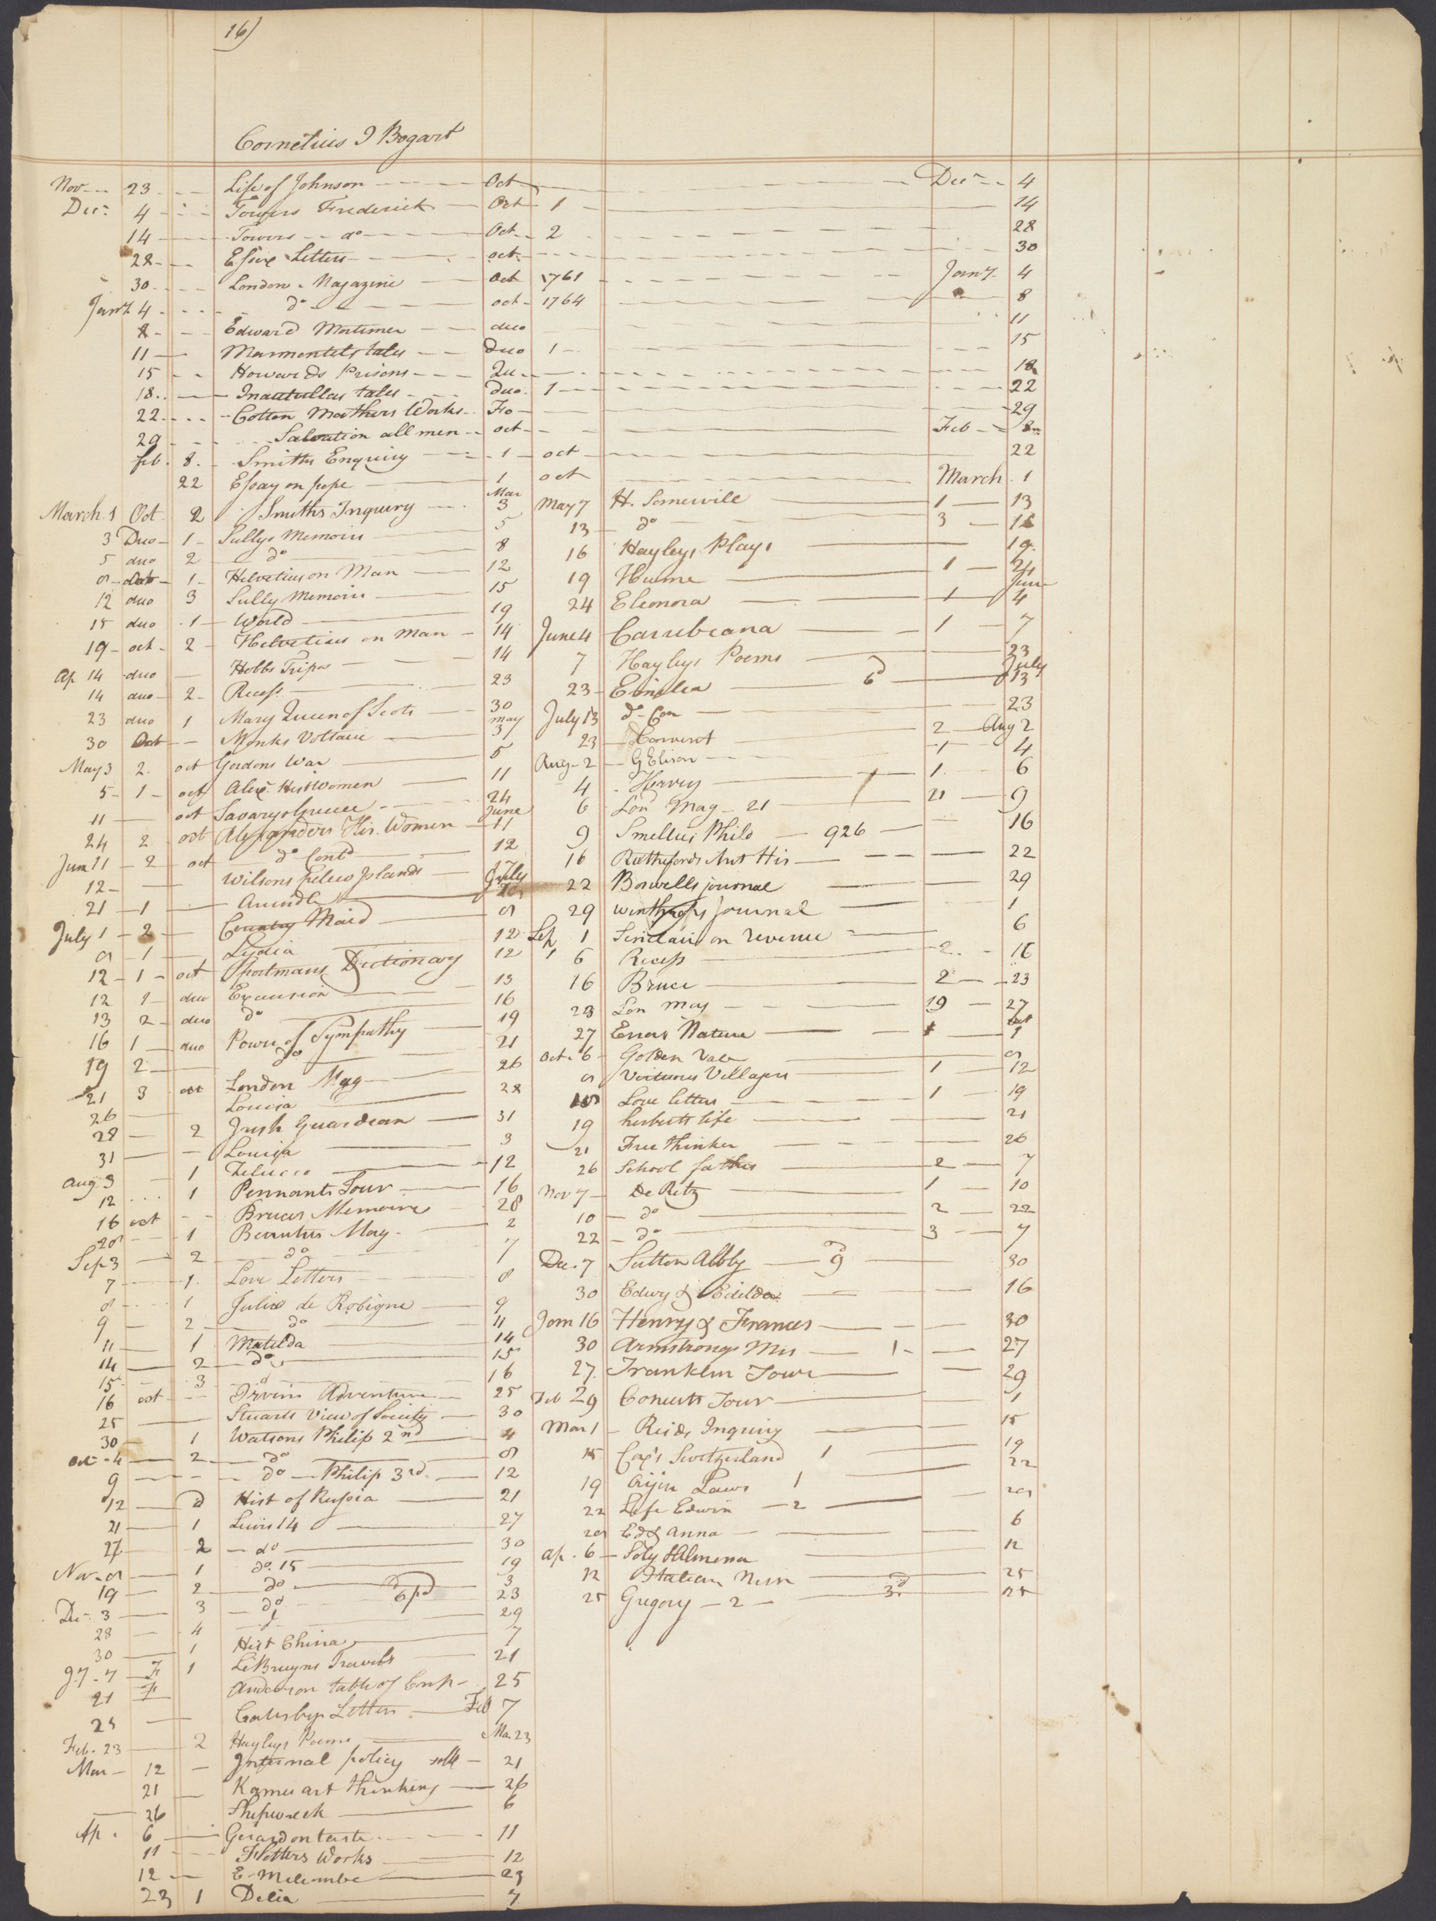 16)
Cornelius I Bogart
Nov 23 Life of Johnson Oct Decr 4
Decr 4 Towers Frederick Oct 1 14
14 Towers do Oct 2 28
28 Letters oct 30
30 London Magazine Oct 1761 Jany 4
Jany 4 do oct 1764 8
8 Edward Mortimer duo 11
11 Marmontels tales Duo 1 15
15 Howards Prisons Qu 18
18 Inatullas tales duo 1 22
22 Cotton Mathers Works Fo 29
29 Salvation all men oct Feb 8
feb 8 Smiths Enquiry 1 oct 22
22 Essay on pope 1 oct March 1
March 1 Oct 2 Smiths Inquiry Mar 3
3 Duo 1 Sullys Memoirs 5
5 duo 2 do 8
8 1 Helvetius on Man 12
12 duo 3 Sully Memoirs 15
15 duo 1 World 19
19 oct 2 Helvetius on man 14
Ap 14 duo Hobbs Tripos 14
14 duo 2 Recess 23
23 duo 1 Mary Queen of Scots 30
30 Oct Monks Voltaire may 3
May 3 2 oct Gordons War 5
5 1 oct Alexr Hist Women 11
11 oct Savary Greece 24
24 2 oct Alexanders His. Women June 11
June 11 2 oct do Contd 12
12 Wilsons pelew Islands July
21 1 Arundle
July 1 2 Country Maid 8
8 1 Lydia 12
12 1 oct Sportmans Dictionary 12
12 1 duo Excursion 13
13 2 duo do 16
16 1 duo Power of Sympathy 19
19 2 do 21
21 3 oct London Mag 26
26 Louisa 28
28 2 Irish Guardean 31
31 Louisa 3
Aug 3 1 Zelucco 12
12 1 Pennants Tour 16
16 oct Bruces Memoirs 28
28 1 May 2
Sep 3 2 do 7
7 1 Love Letters 8
8 1 Julia de Robigne 9
9 2 do 11
11 1 Matilda 14
14 2 do 15
15 3 d 16
16 oct Irvins Adventure 25
25 Stuarts View of Society 30
30 1 Watsons Philip 2nd 4
oct 4 2 do 8
9 do Philip 3rd 12
12 d Hist of Russia 21
21 1 Lewis 14 27
27 2 do 30
Nov 8 1 do 15 19
19 2 do 6pd 3
De 3 3 do 23
28 4 d 29
30 1 Hist China 7
Jy 7 F 1 LeBruyns Travels 21
21 F Anderson table of Comp 25
25 Letters Feb 7
Feb 23 2 Hayleys Poems Ma 23
Mar 12 Internal policy 21
21 Kames art thinking 26
26 Shipwreck 6
Ap 6 Gerard on taste 11
11 Works 12
12 E Melcombe 23
23 1 Delia 7
May 7 H. Somerville 1 13
13 do 3 16
16 Hayleys Plays 19
19 Hume 1 24
24 Eleonora 1 June 4
June 4 Carribeana 1 7
7 Hayleys Poems 23
23 6d July 13
July 13 do Con 23
23 Convent 2 Aug 2
Aug 2 G Elison 1 4
4 Hervey 1 6
6 Lond Mag 21 21 9
9 Smellies Philo 926 16
16 Rutherfords Ant His 22
22 Boswells journal 29
29 Winthrops Journal 1
Sep 1 Sinclair on revenue 6
6 Recess 2 16
16 Bruce 2 23
23 Lon mag 19 27
27 Errors Nature
Oct 6 Golden Vale 8
8 Virtuous Villagers 1 12
Love letters 1 19
19 herberts life 21
21 Free thinker 26
26 School fathers 2 7
Nov 7 De Retz 1 10
10 do 2 22
22 do 3 7
Dec. 7 Sutton Abby 9d 30
30 Edwy & Edilda 16
Jan 16 Henry & Frances 30
30 Armstrongs Mis 1 27
27 Franklin Tour 29
Feb 29 Concuts Tour 1
Mar 1 Reids Inquiry 15
15 Cox's Switzerland 1 19
19 Laws 1 22
22 Life Edwin 2 28
28 Ed & Anna 6
Ap. 6 Soly & Almena 12
12 Italian Nun 25
25 Gregory 2 3d 25